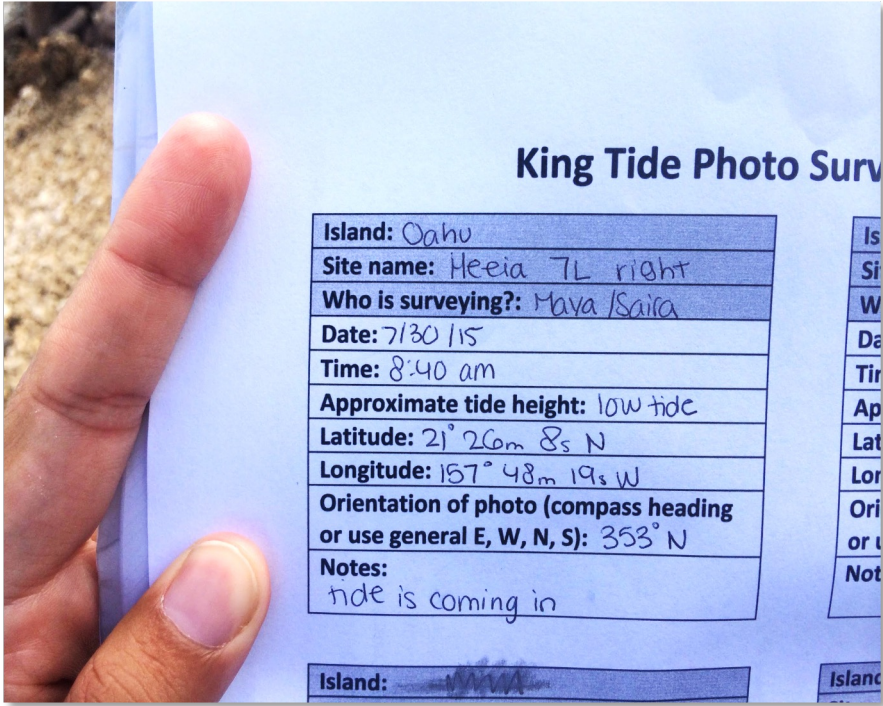 King Tide Photo Surv
Island: Oahu
Site name: Heeia 7L right
Who is surveying?: Maya/Saira
Date: 7/30/15
Time: 8:40 am
Approximate tide height: low tide
Latitude: 21° 26m 8s N
Longitude: 157° 48m 19s W
Orientation of photo (compass heading
or use general E, W, N, S): 353° N
Notes:
tide is coming in
Island:
Is
Si
W
Da
Tir
Ap
Lat
Lor
Ori
or u
Not
Island